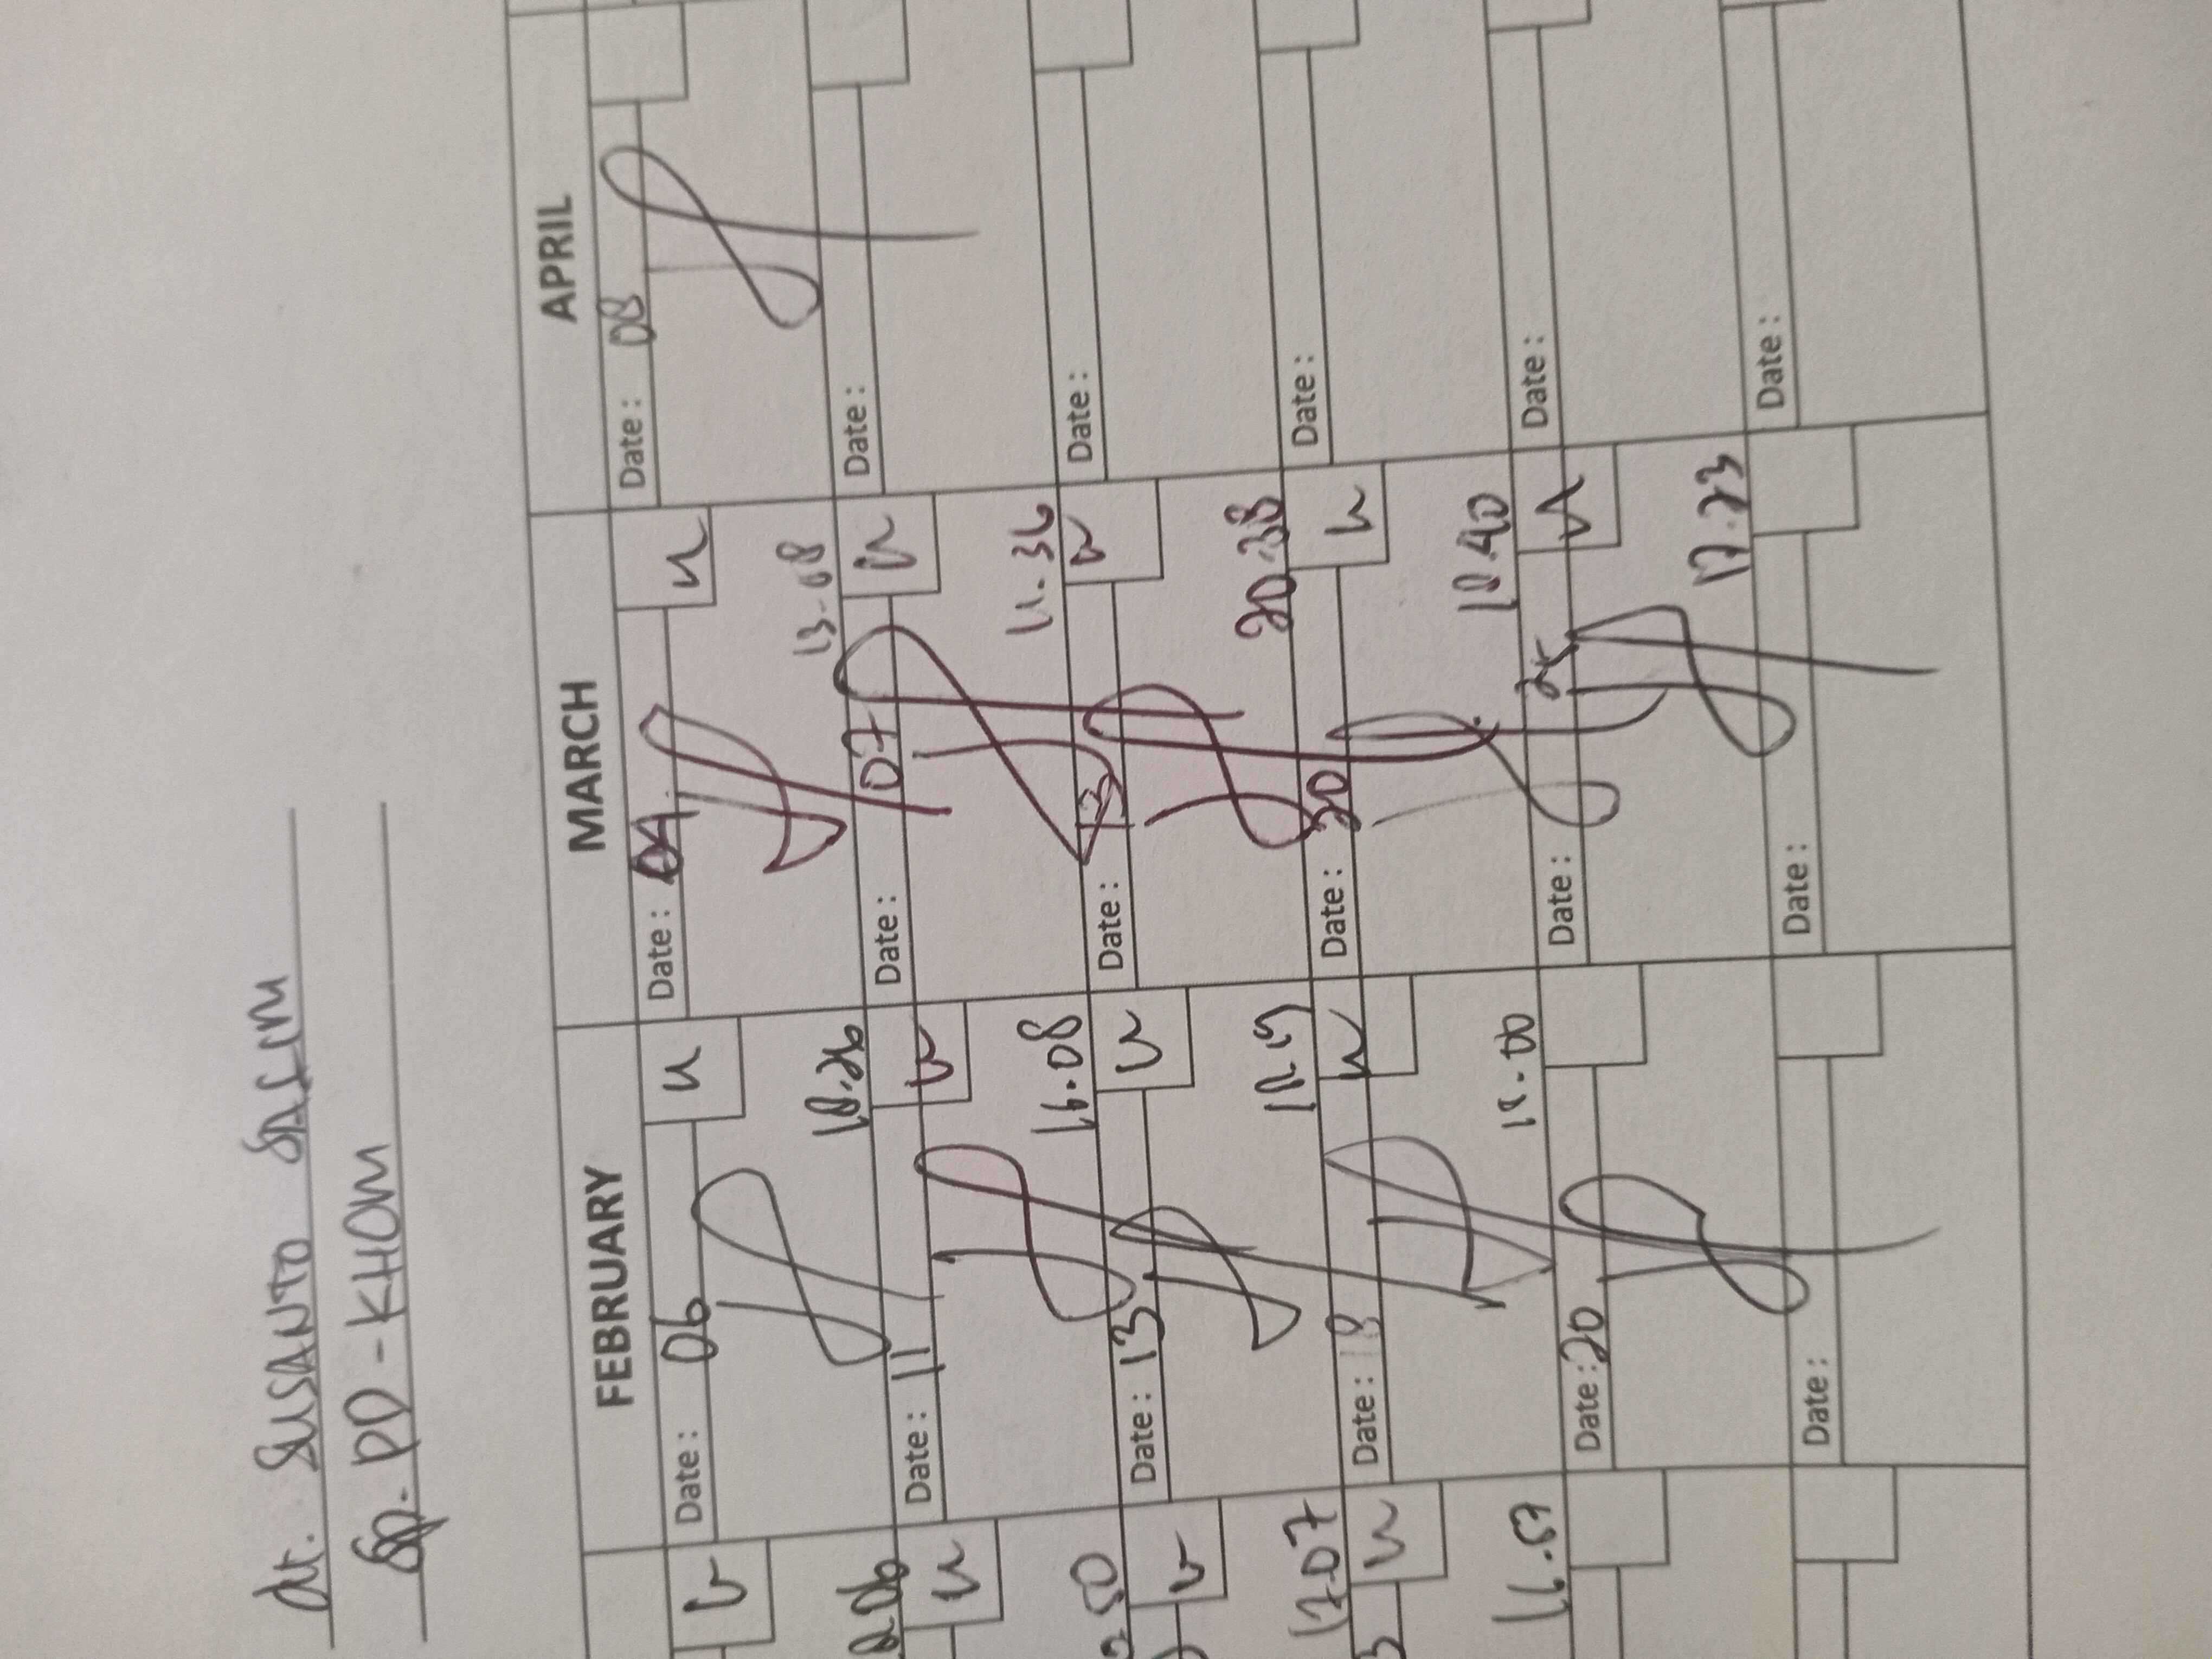 dr. SUSANTO SALIM
Sp. PD - KHOM
FEBRUARY MARCH APRIL
Date: 06 Date: 04 Date: 08
18.26 13.08
Date: 11 Date: 07 Date:
16.08 11.36
Date: 13 Date: 13 Date:
17.07 18.19 20.38
Date: 18 Date: 20 Date:
16.59 18.40
Date: 20 Date: 25 Date:
17.23
Date: Date: Date: